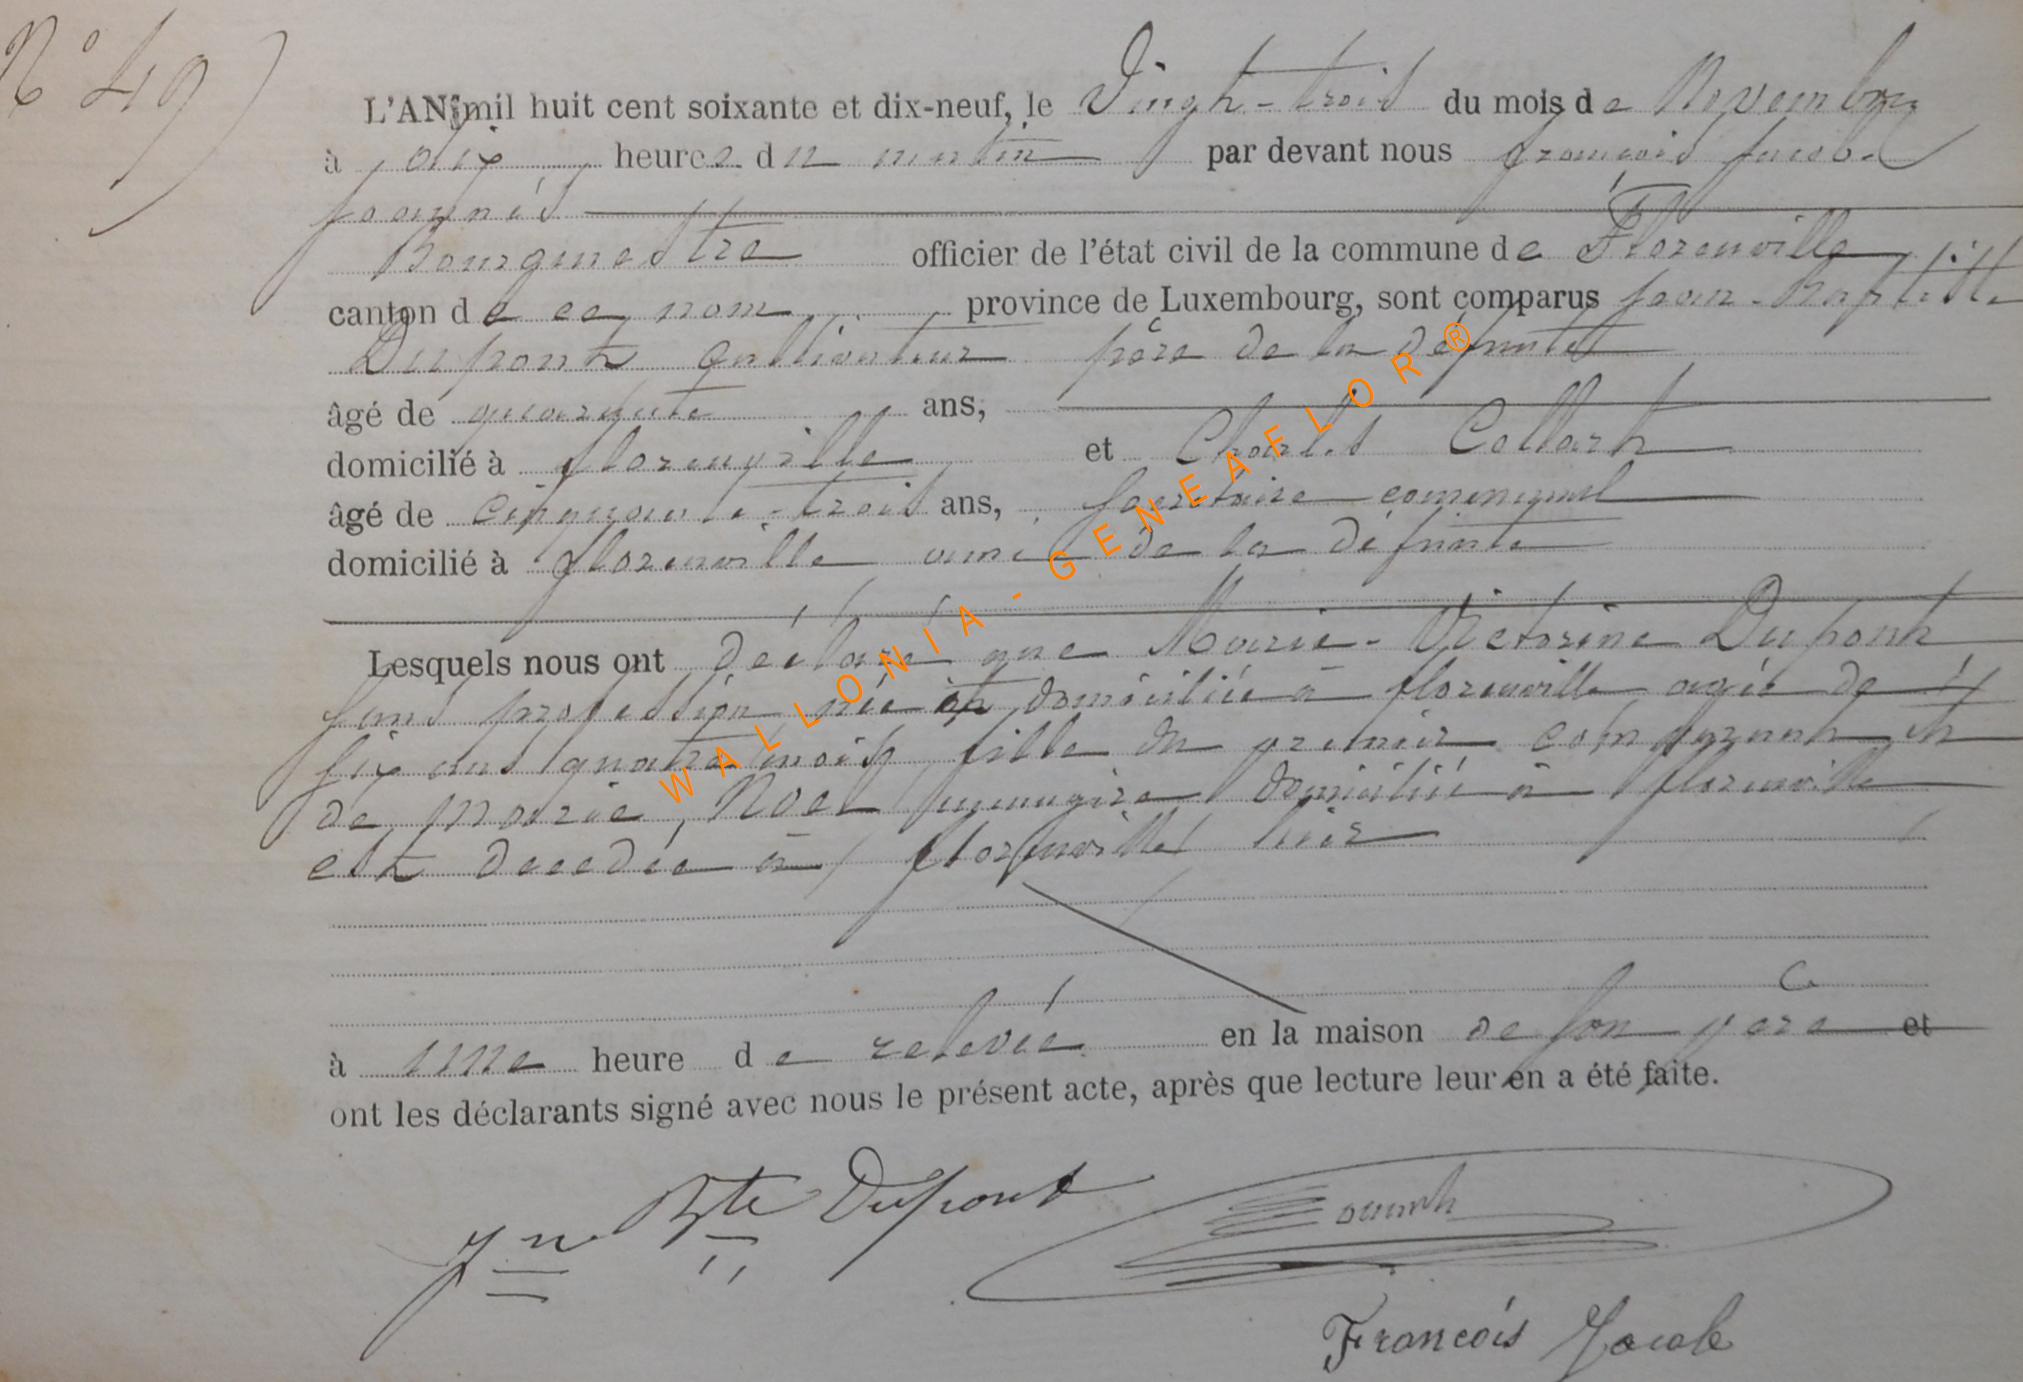 N° 49
L'AN mil huit cent soixante et dix-neuf, le Vingt-trois du mois de Novembre
à dix heures du matin par devant nous françois Jacob
Bourgmestre officier de l'état civil de la commune de Florenville
canton de ce nom province de Luxembourg, sont comparus Jean-Baptiste
Dupont Cultivateur père de la défunte
âgé de quarante ans,
domicilié à florenville et Charles Collart
âgé de cinquante-trois ans, Secrétaire communal
domicilié à florenville ami de la défunte
Lesquels nous ont déclaré que Marie-Victorine Dupont
sans profession née et domiciliée à florenville agée de
six ans quatre mois fille du premier comparant et
de Marie Noel menagère domicilié à florenville
est decedée à florenville hier
à une heure de relevée en la maison de son père et
ont les déclarants signé avec nous le présent acte, après que lecture leur en a été faite.
Jn Bte Dupont
François Jacob
WALLONIA - GENEAFLOR®